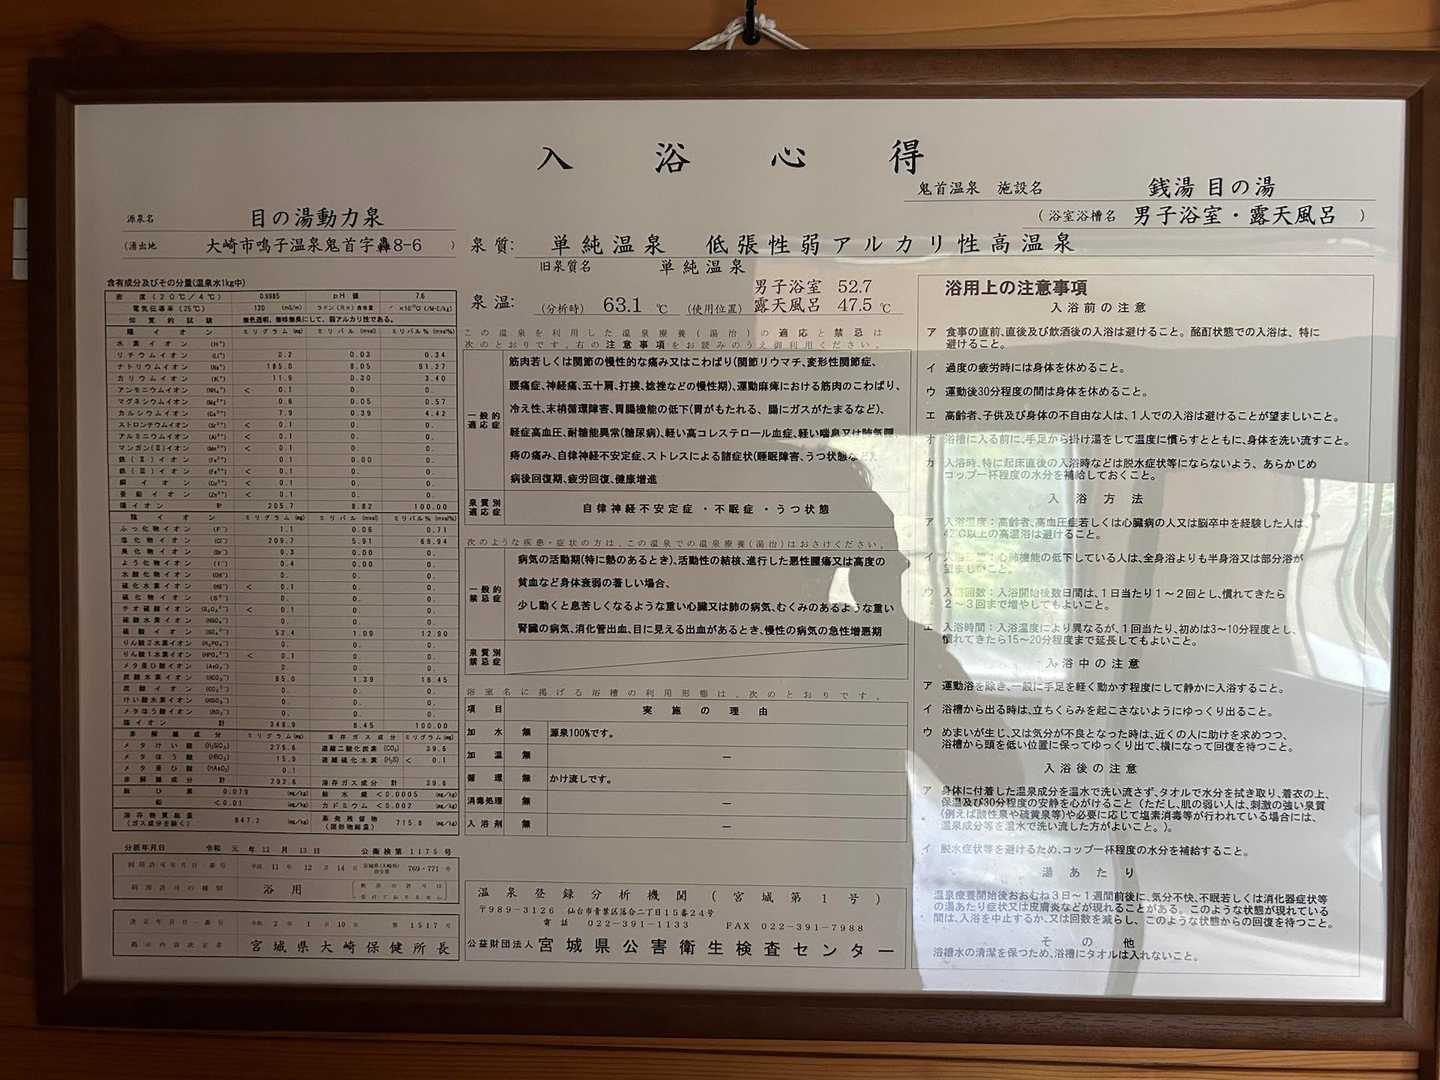 入浴心得
鬼首温泉 施設名 銭湯 目の湯
(浴室浴槽名 男子浴室・露天風呂 )
源泉名 目の湯動力泉
(湧出地 大崎市鳴子温泉鬼首字轟8-6 )
泉質: 単純温泉 低張性弱アルカリ性高温泉
旧泉質名 単純温泉
泉温: (分析時) 63.1 ℃ (使用位置) 男子浴室 52.7
露天風呂 47.5 ℃
含有成分及びその分量(温泉水1kg中)
密度(20℃/4℃) 0.9985 pH値 7.6
電気伝導率(25℃) 120 (mS/m) ラドン(Rn)含有量
知覚的試験 無色透明、無味無臭にして、弱アルカリ性である。
陽イオン ミリグラム(mg) ミリバル(mval) ミリバル%(mval%)
水素イオン (H⁺) 0. 0.
リチウムイオン (Li⁺) 0.2 0.03 0.34
ナトリウムイオン (Na⁺) 185.0 8.05 91.27
カリウムイオン (K⁺) 11.9 0.30 3.40
アンモニウムイオン (NH₄⁺) < 0.1 0. 0.
マグネシウムイオン (Mg²⁺) 0.6 0.05 0.57
カルシウムイオン (Ca²⁺) 7.9 0.39 4.42
ストロンチウムイオン (Sr²⁺) < 0.1 0. 0.
アルミニウムイオン (Al³⁺) < 0.1 0. 0.
マンガン(Ⅱ)イオン (Mn²⁺) < 0.1 0. 0.
鉄(Ⅱ)イオン (Fe²⁺) 0.1 0.00 0.
鉄(Ⅲ)イオン (Fe³⁺) < 0.1 0. 0.
銅イオン (Cu²⁺) < 0.1 0. 0.
亜鉛イオン (Zn²⁺) < 0.1 0. 0.
陽イオン計 205.7 8.82 100.00
陰イオン ミリグラム(mg) ミリバル(mval) ミリバル%(mval%)
ふっ化物イオン (F⁻) 1.1 0.06 0.71
塩化物イオン (Cl⁻) 209.7 5.91 69.94
臭化物イオン (Br⁻) 0.3 0.00 0.
よう化物イオン (I⁻) 0.4 0.00 0.
水酸化物イオン (OH⁻) 0. 0. 0.
硫化水素イオン (HS⁻) < 0.1 0. 0.
硫化物イオン (S²⁻) 0. 0. 0.
チオ硫酸イオン (S₂O₃²⁻) < 0.1 0. 0.
硫酸水素イオン (HSO₄⁻) 0. 0. 0.
硫酸イオン (SO₄²⁻) 52.4 1.09 12.90
りん酸2水素イオン (H₂PO₄⁻) 0. 0. 0.
りん酸1水素イオン (HPO₄²⁻) < 0.1 0. 0.
メタ亜ひ酸イオン (AsO₂⁻) 0. 0. 0.
炭酸水素イオン (HCO₃⁻) 85.0 1.39 16.45
炭酸イオン (CO₃²⁻) 0. 0. 0.
けい酸水素イオン 0. 0. 0.
メタほう酸イオン (BO₂⁻) 0. 0. 0.
陰イオン計 348.9 8.45 100.00
非解離成分 ミリグラム(mg) 溶存ガス成分 ミリグラム(mg)
メタけい酸 (H₂SiO₃) 276.6 遊離二酸化炭素 (CO₂) 39.6
メタほう酸 (HBO₂) 15.9 遊離硫化水素 (H₂S) < 0.1
メタ亜ひ酸 (HAsO₂) 0.1
非解離成分計 292.6 溶存ガス成分計 39.6
総ひ素 0.079 (mg/kg) 総水銀 <0.0005 (mg/kg)
鉛 <0.01 (mg/kg) カドミウム <0.002 (mg/kg)
溶存物質総量(ガス成分を除く) 847.2 (mg/kg) 蒸発残留物(固形物総量) 715.8 (mg/kg)
分析年月日 令和元年12月13日 公衛検第1175号
利用許可年月日・番号 平成11年12月14日 769-771号
利用許可の種類 浴用
決定年月日・番号 令和2年1月10日 第1517号
掲示内容決定者 宮城県大崎保健所長
この温泉を利用した温泉療養(湯治)の適応と禁忌は
次のとおりです。右の注意事項をお読みのうえ御利用ください。
一般的適応症
筋肉若しくは関節の慢性的な痛み又はこわばり(関節リウマチ、変形性関節症、
腰痛症、神経痛、五十肩、打撲、捻挫などの慢性期)、運動麻痺における筋肉のこわばり、
冷え性、末梢循環障害、胃腸機能の低下(胃がもたれる、腸にガスがたまるなど)、
軽症高血圧、耐糖能異常(糖尿病)、軽い高コレステロール血症、軽い喘息又は肺気腫、
痔の痛み、自律神経不安定症、ストレスによる諸症状(睡眠障害、うつ状態など)、
病後回復期、疲労回復、健康増進
泉質別適応症 自律神経不安定症・不眠症・うつ状態
次のような疾患・症状の方は、この温泉での温泉療養(湯治)はおさけください。
一般的禁忌症
病気の活動期(特に熱のあるとき)、活動性の結核、進行した悪性腫瘍又は高度の
貧血など身体衰弱の著しい場合、
少し動くと息苦しくなるような重い心臓又は肺の病気、むくみのあるような重い
腎臓の病気、消化管出血、目に見える出血があるとき、慢性の病気の急性増悪期
泉質別禁忌症
浴室名に掲げる浴槽の利用形態は、次のとおりです。
項目 実施の理由
加水 無 源泉100%です。
加温 無 ―
循環 無 かけ流しです。
消毒処理 無 ―
入浴剤 無 ―
温泉登録分析機関(宮城第1号)
〒989-3126 仙台市青葉区落合二丁目15番24号
電話 022-391-1133 FAX 022-391-7988
公益財団法人宮城県公害衛生検査センター
浴用上の注意事項
入浴前の注意
ア 食事の直前、直後及び飲酒後の入浴は避けること。酩酊状態での入浴は、特に
避けること。
イ 過度の疲労時には身体を休めること。
ウ 運動後30分程度の間は身体を休めること。
エ 高齢者、子供及び身体の不自由な人は、1人での入浴は避けることが望ましいこと。
オ 浴槽に入る前に、手足から掛け湯をして温度に慣らすとともに、身体を洗い流すこと。
カ 入浴時、特に起床直後の入浴時などは脱水症状等にならないよう、あらかじめ
コップ一杯程度の水分を補給しておくこと。
入浴方法
ア 入浴温度:高齢者、高血圧症若しくは心臓病の人又は脳卒中を経験した人は、
42℃以上の高温浴は避けること。
イ 入浴形態:心肺機能の低下している人は、全身浴よりも半身浴又は部分浴が
望ましいこと。
ウ 入浴回数:入浴開始後数日間は、1日当たり1~2回とし、慣れてきたら
2~3回まで増やしてもよいこと。
エ 入浴時間:入浴温度により異なるが、1回当たり、初めは3~10分程度とし、
慣れてきたら15~20分程度まで延長してもよいこと。
入浴中の注意
ア 運動浴を除き、一般に手足を軽く動かす程度にして静かに入浴すること。
イ 浴槽から出る時は、立ちくらみを起こさないようにゆっくり出ること。
ウ めまいが生じ、又は気分が不良となった時は、近くの人に助けを求めつつ、
浴槽から頭を低い位置に保ってゆっくり出て、横になって回復を待つこと。
入浴後の注意
ア 身体に付着した温泉成分を温水で洗い流さず、タオルで水分を拭き取り、着衣の上、
保温及び30分程度の安静を心がけること(ただし、肌の弱い人は、刺激の強い泉質
(例えば酸性泉や硫黄泉等)や必要に応じて塩素消毒等が行われている場合には、
温泉成分等を温水で洗い流した方がよいこと。)。
イ 脱水症状等を避けるため、コップ一杯程度の水分を補給すること。
湯あたり
温泉療養開始後おおむね3日~1週間前後に、気分不快、不眠若しくは消化器症状等
の湯あたり症状又は皮膚炎などが現れることがある。このような状態が現れている
間は、入浴を中止するか、又は回数を減らし、このような状態からの回復を待つこと。
その他
浴槽水の清潔を保つため、浴槽にタオルは入れないこと。